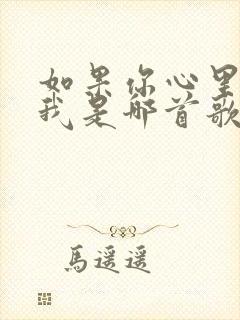 如果你心里
我是那首歌
馬遥遥